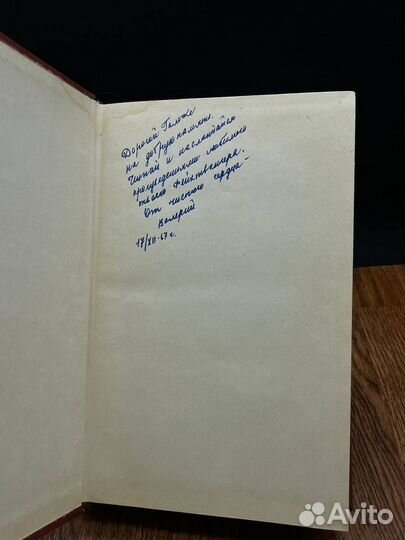 Дорогой Галочке
на добрую память.
Читай и наслаждайся
произведениями любимого
твоего Фейхтвангера.
От чистого сердца -
Валерий
17/XII-67 г.
Avito